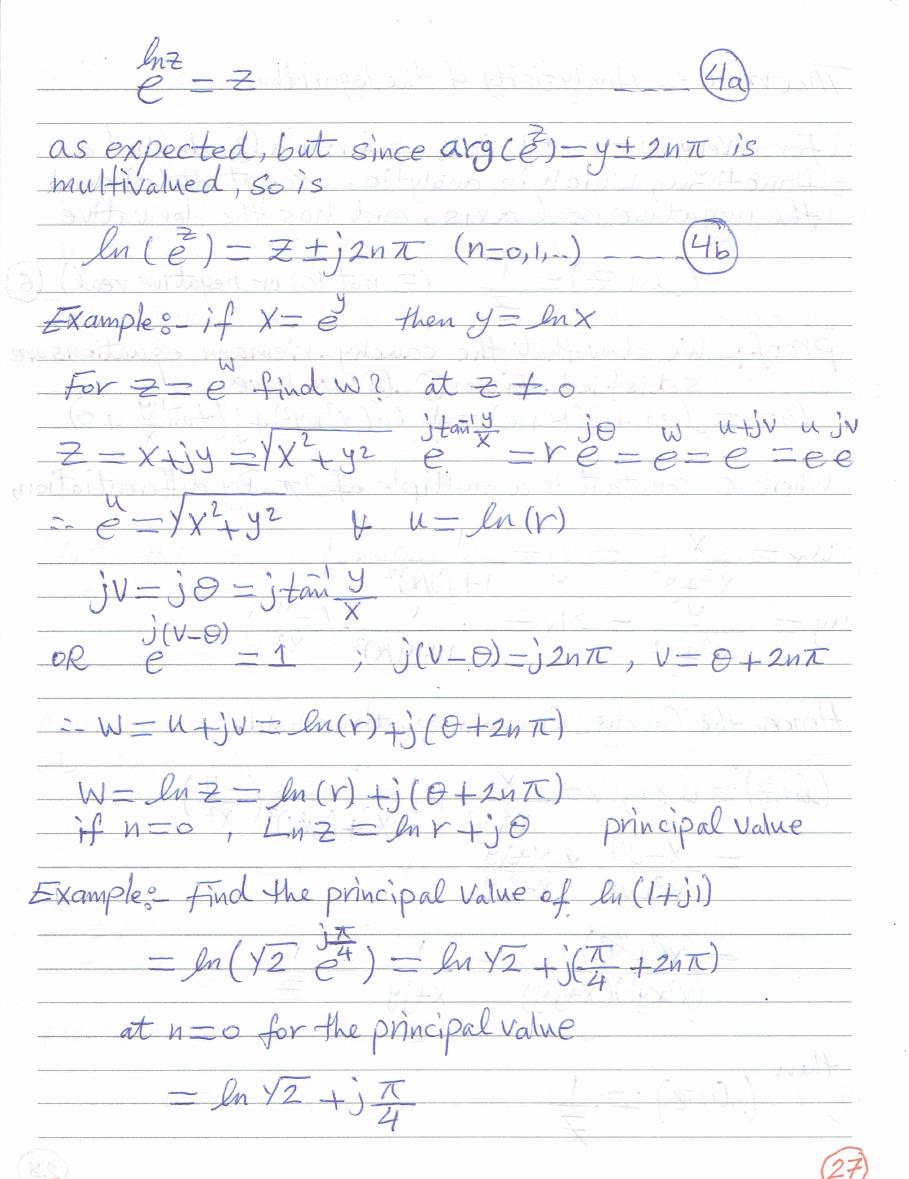 e^{ln z} = z ---- (4a)
as expected, but since arg(e^z) = y ± 2nπ is
multivalued, so is
ln(e^z) = z ± j2nπ (n=0,1,..) ---- (4b)
Example:- if x = e^y then y = ln x
For z = e^w find w? at z ≠ 0
z = x+jy = √(x²+y²) e^{j tan⁻¹ y/x} = r e^{jθ} = e^w = e^{u+jv} = e^u e^{jv}
∴ e^u = √(x²+y²) & u = ln(r)
jv = jθ = j tan⁻¹ y/x
OR e^{j(v-θ)} = 1 ; j(v-θ) = j2nπ , v = θ + 2nπ
∴ w = u + jv = ln(r) + j(θ + 2nπ)
w = ln z = ln(r) + j(θ + 2nπ)
if n=0 , Ln z = ln r + jθ principal value
Example:- Find the principal value of ln(1+j1)
= ln(√2 e^{jπ/4}) = ln √2 + j(π/4 + 2nπ)
at n=0 for the principal value
= ln √2 + j π/4
27